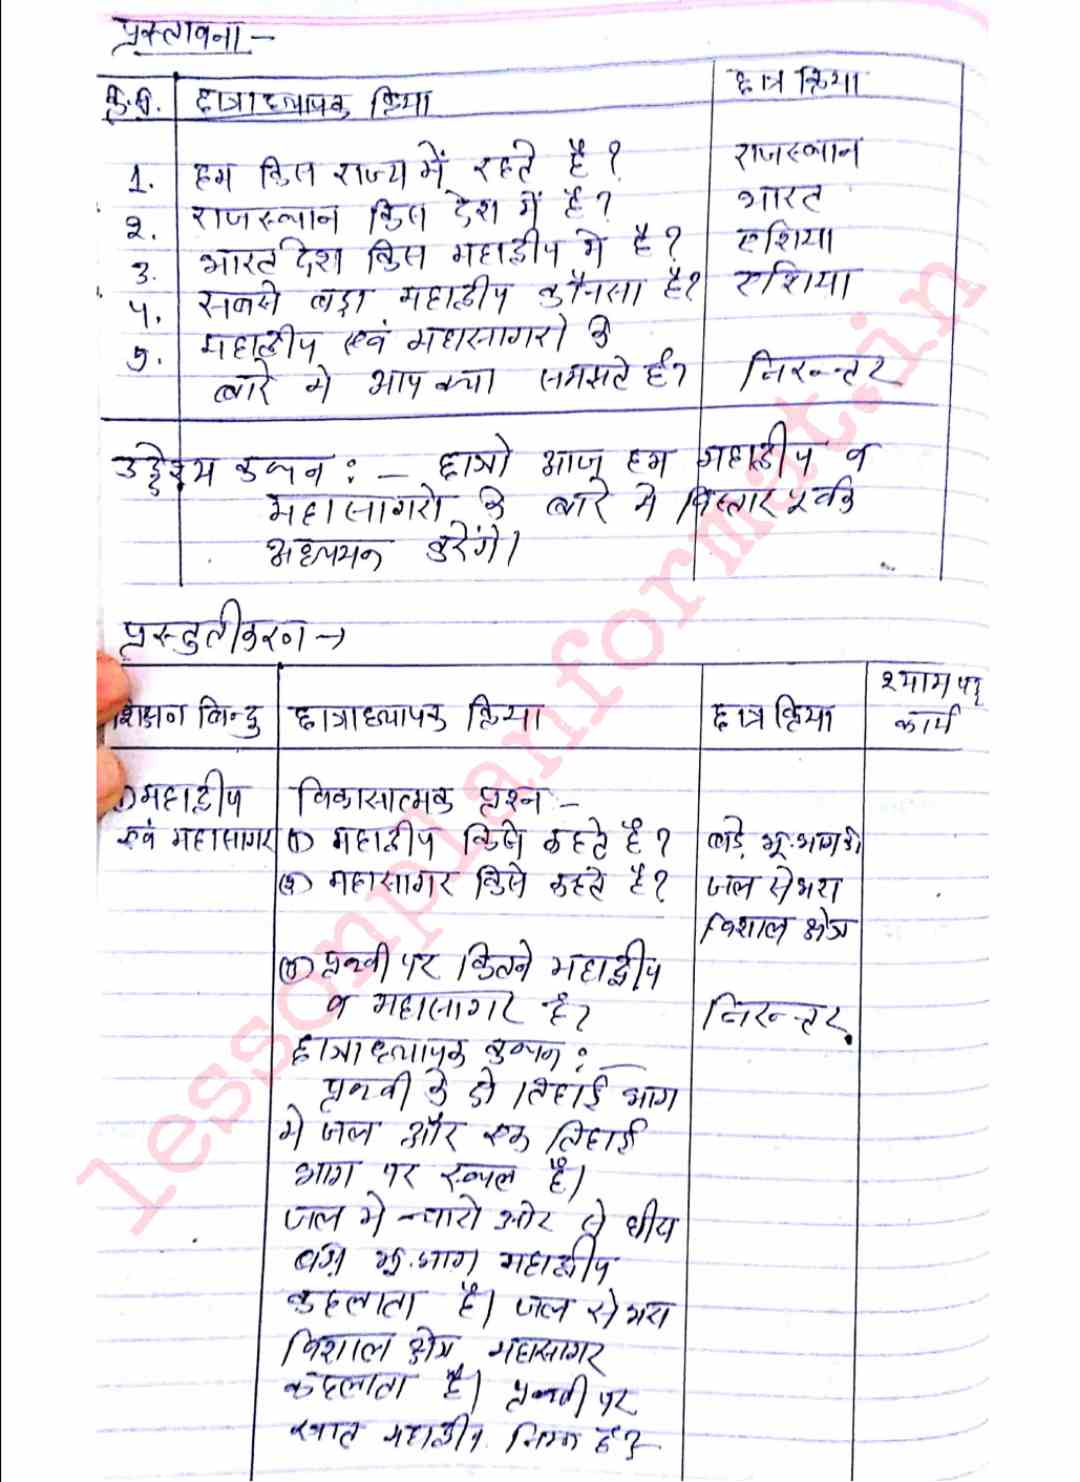 प्रस्तावना -
क्र.सं. छात्राध्यापक क्रिया छात्र क्रिया
1. हम किस राज्य में रहते है ? राजस्थान
2. राजस्थान किस देश में है ? भारत
3. भारत देश किस महाद्वीप मे है ? एशिया
4. सबसे बड़ा महाद्वीप कौनसा है ? एशिया
5. महाद्वीप एवं महासागरो के
बारे मे आप क्या समझते है ? निरन्तर
उद्देश्य कथन : - छात्रो आज हम महाद्वीप व
महासागरो के बारे मे विस्तार पूर्वक
अध्ययन करेंगे।
प्रस्तुतीकरण →
शिक्षण बिन्दु छात्राध्यापक क्रिया छात्र क्रिया श्यामपट्ट
कार्य
1) महाद्वीप विकासात्मक प्रश्न -
एवं महासागर (1) महाद्वीप किसे कहते है ? बड़े भू-भाग को
(2) महासागर किसे कहते है ? जल से भरा
विशाल क्षेत्र
(3) पृथ्वी पर कितने महाद्वीप
व महासागर है ? निरन्तर
छात्राध्यापक कथन : -
पृथ्वी के दो तिहाई भाग
मे जल और एक तिहाई
भाग पर स्थल है।
जल मे चारो ओर से घीरा
भू-भाग महाद्वीप
कहलाता है। जल से भरा
विशाल क्षेत्र महासागर
कहलाता है। पृथ्वी पर
सात महाद्वीप निम्न है -
lessonplanformat.in